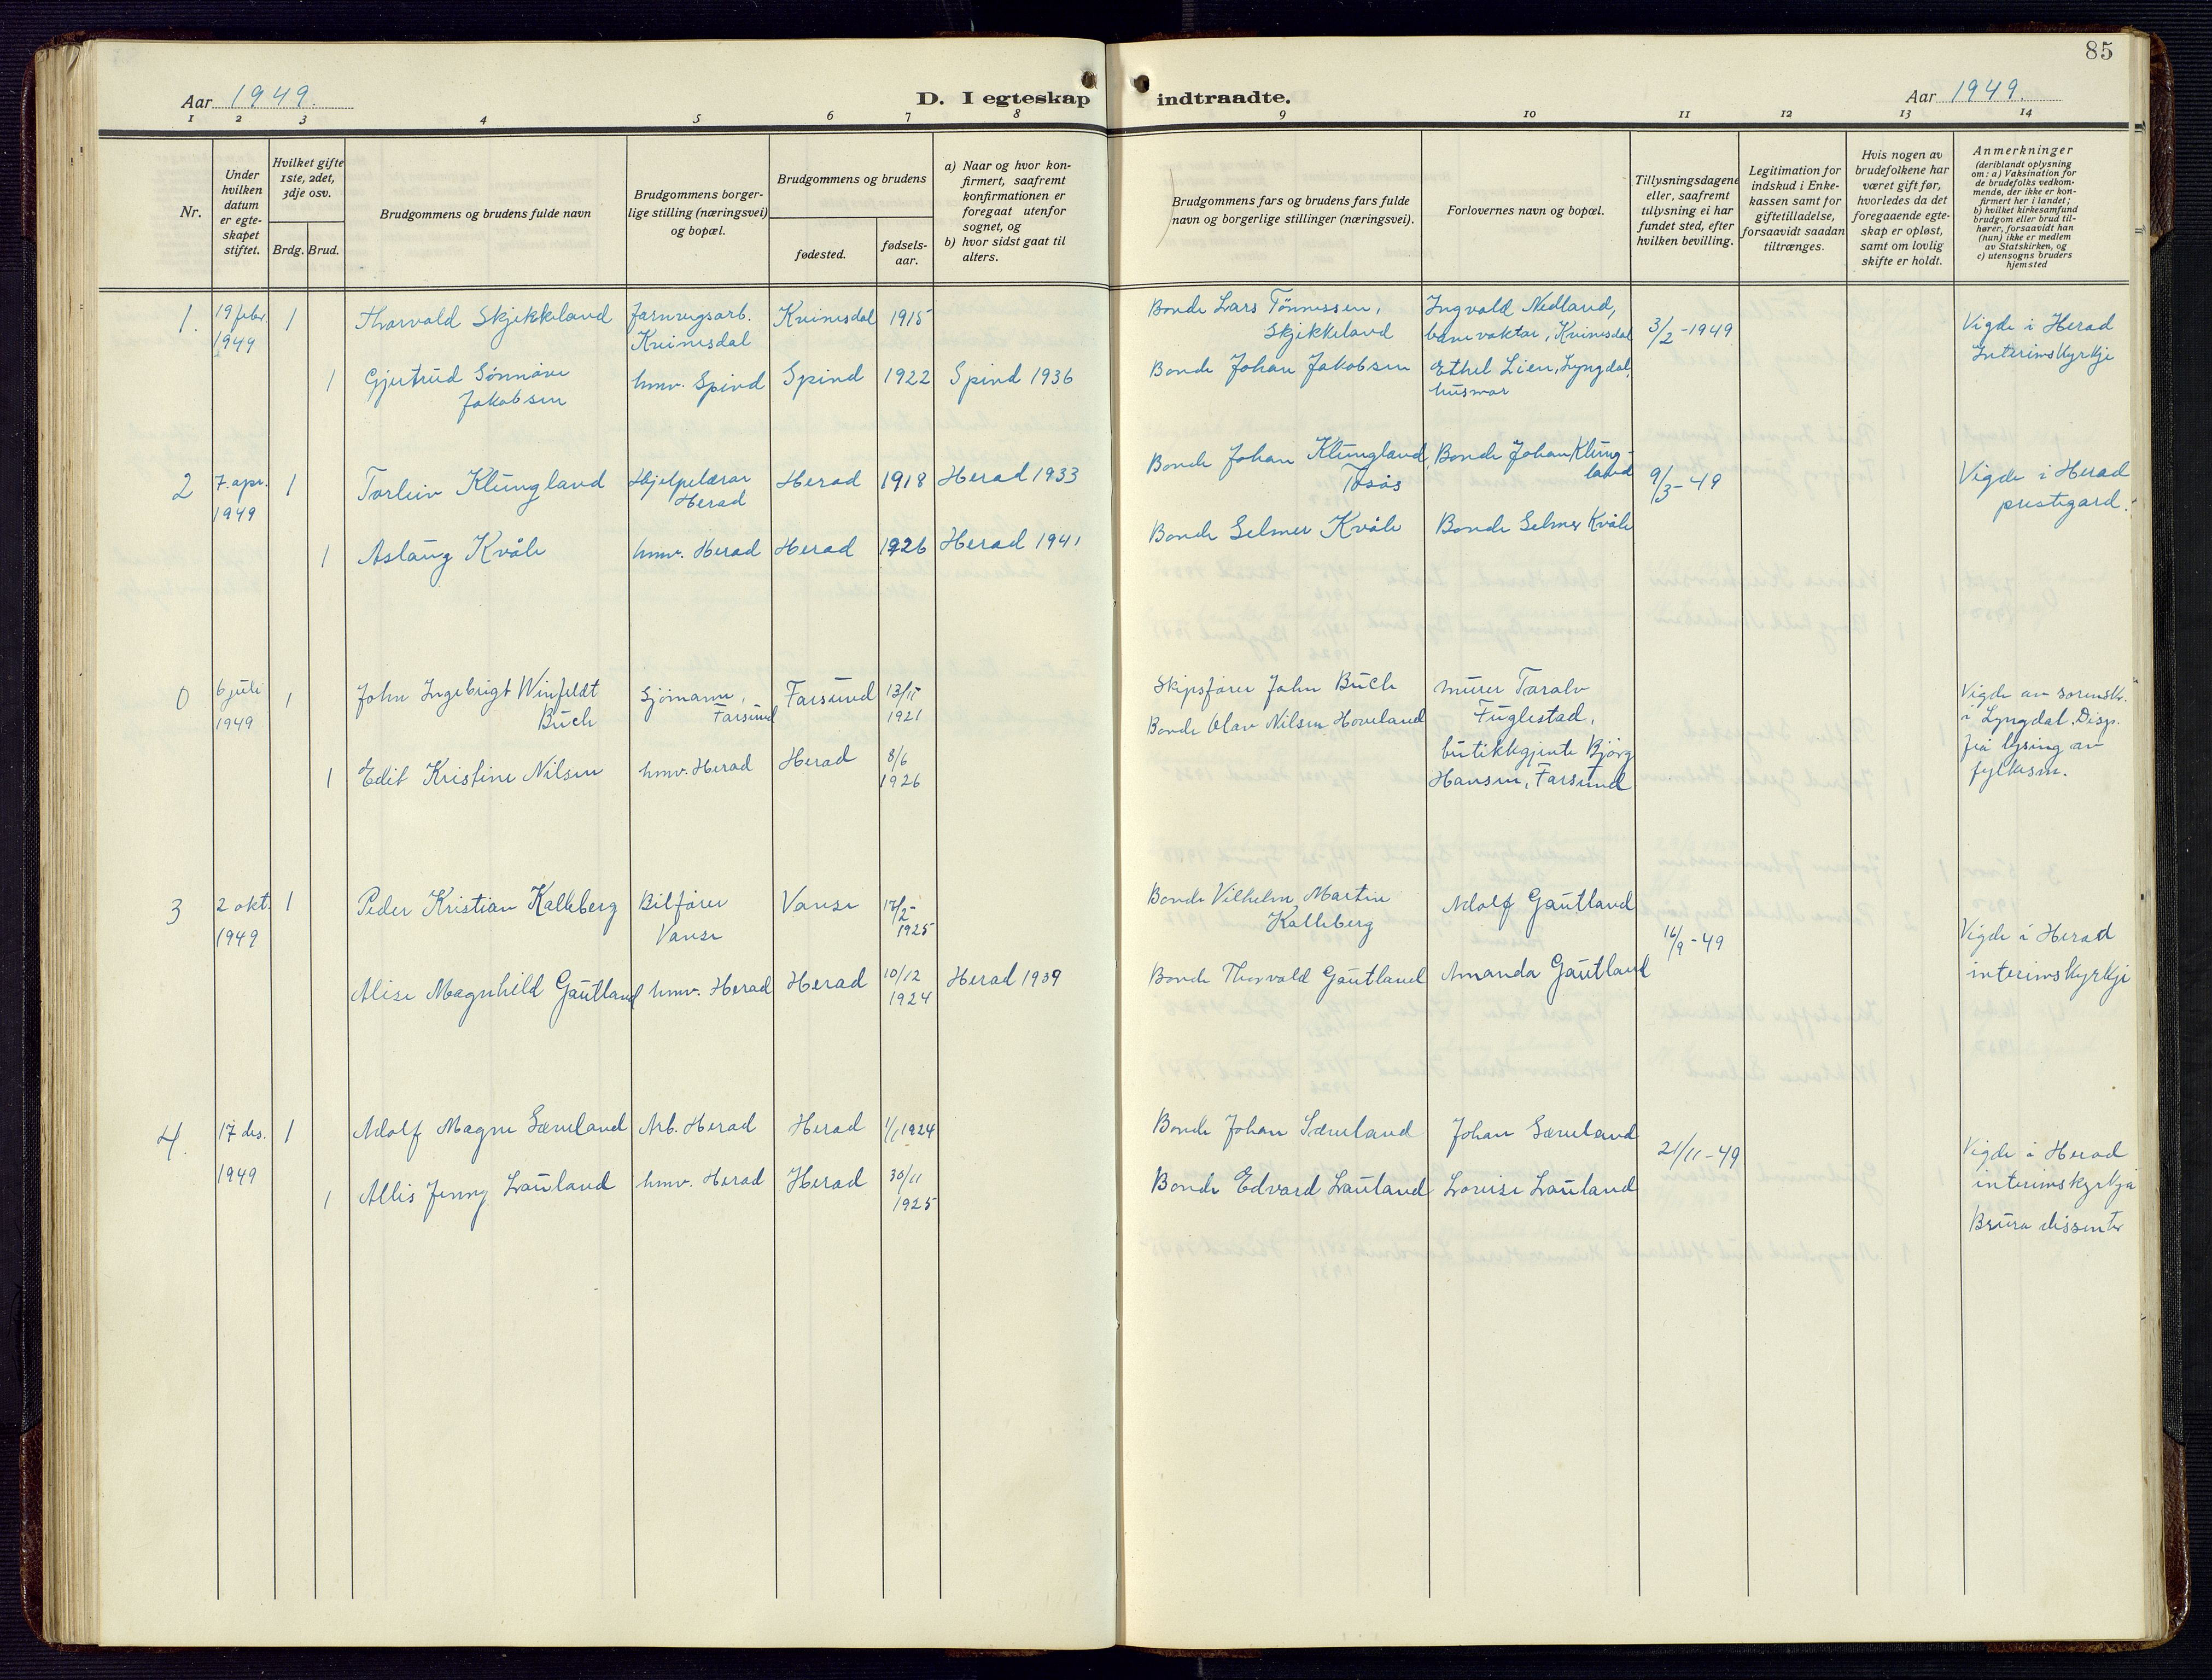 85
Aar 1949.
D. I egteskap indtraadte.
Aar 1949.
1 2 3 4 5 6 7 8 9 10 11 12 13 14
Nr.
Under hvilken datum er egte-skapet stiftet.
Hvilket gifte 1ste, 2det, 3dje osv.
Brdg. Brud.
Brudgommens og brudens fulde navn
Brudgommens borger-lige stilling (næringsvei) og bopæl.
Brudgommens og brudens
fødested.
fødsels-aar.
a) Naar og hvor kon-firmert, saafremt konfirmationen er foregaat utenfor sognet, og
b) hvor sidst gaat til alters.
Brudgommens fars og brudens fars fulde navn og borgerlige stillinger (næringsvei).
Forlovernes navn og bopæl.
Tillysningsdagene eller, saafremt tillysning ei har fundet sted, efter hvilken bevilling.
Legitimation for indskud i Enke-kassen samt for giftetilladelse, forsaavidt saadan tiltrænges.
Hvis nogen av brudefolkene har været gift før, hvorledes da det foregaaende egte-skap er opløst, samt om lovlig skifte er holdt.
Anmerkninger (deriblandt oplysning om: a) Vaksination for de brudefolks vedkom-mende, der ikke er kon-firmert her i landet; b) hvilket kirkesamfund brudgom eller brud til-hører, forsaavidt han (hun) ikke er medlem av Statskirken, og c) utensogns bruders hjemsted
1. 19 febr. 1949 1 Thorvald Skjekkeland Jarnvegsarb. Kvinesdal Kvinesdal 1915 Bonde Lars Tønnessen, Skjekkeland Ingvald Nedland, banevaktar, Kvinesdal 3/2-1949 Vigde i Herad Interimskyrkje
1 Gjertrud Sønnøve Jakobsen hmv. Spind Spind 1922 Spind 1936 Bonde Johan Jakobsen Ethel Lien, Lyngdal, husmor
2 7. apr. 1949 1 Torleiv Klungland Hjelpelærar Herad Herad 1918 Herad 1933 Bonde Johan Klungland, Tosås Bonde Johan Klung-land 9/3-49 Vigde i Herad prestegard.
1 Aslaug Kvåle hmv. Herad Herad 1926 Herad 1941 Bonde Selmer Kvåle Bonde Selmer Kvåle
0 6 juli 1949 1 John Ingebrigt Winfeldt Buch Sjömann, Farsund Farsund 13/11 1921 Skipsfører John Buch murer Taralv Fuglestad, Vigde av sorensk. i Lyngdal. Disp. frå lysing av fylkesm.
1 Edit Kristine Nilsen hmv. Herad Herad 8/6 1926 Bonde Olav Nilsen Hoveland butikkgjente Bjørg Hansen, Farsund
3 2 okt. 1949 1 Peder Kristian Kalleberg Bilfører Vanse Vanse 17/2-1925 Bonde Vilhelm Martin Kalleberg Adolf Gautland 16/9-49 Vigde i Herad interimskyrkje
Alise Magnhild Gautland hmv. Herad Herad 10/12 1924 Herad 1939 Bonde Thorvald Gautland Amanda Gautland
4. 17 des. 1949 1 Adolf Magne Særeland Arb. Herad Herad 1/1 1924 Bonde Johan Særeland Johan Særeland 21/11-49 Vigde i Herad interimskyrkja
1 Allis Jenny Lauland hmv. Herad Herad 30/11 1925 Bonde Edvard Lauland Lovise Lauland Brura dissenter